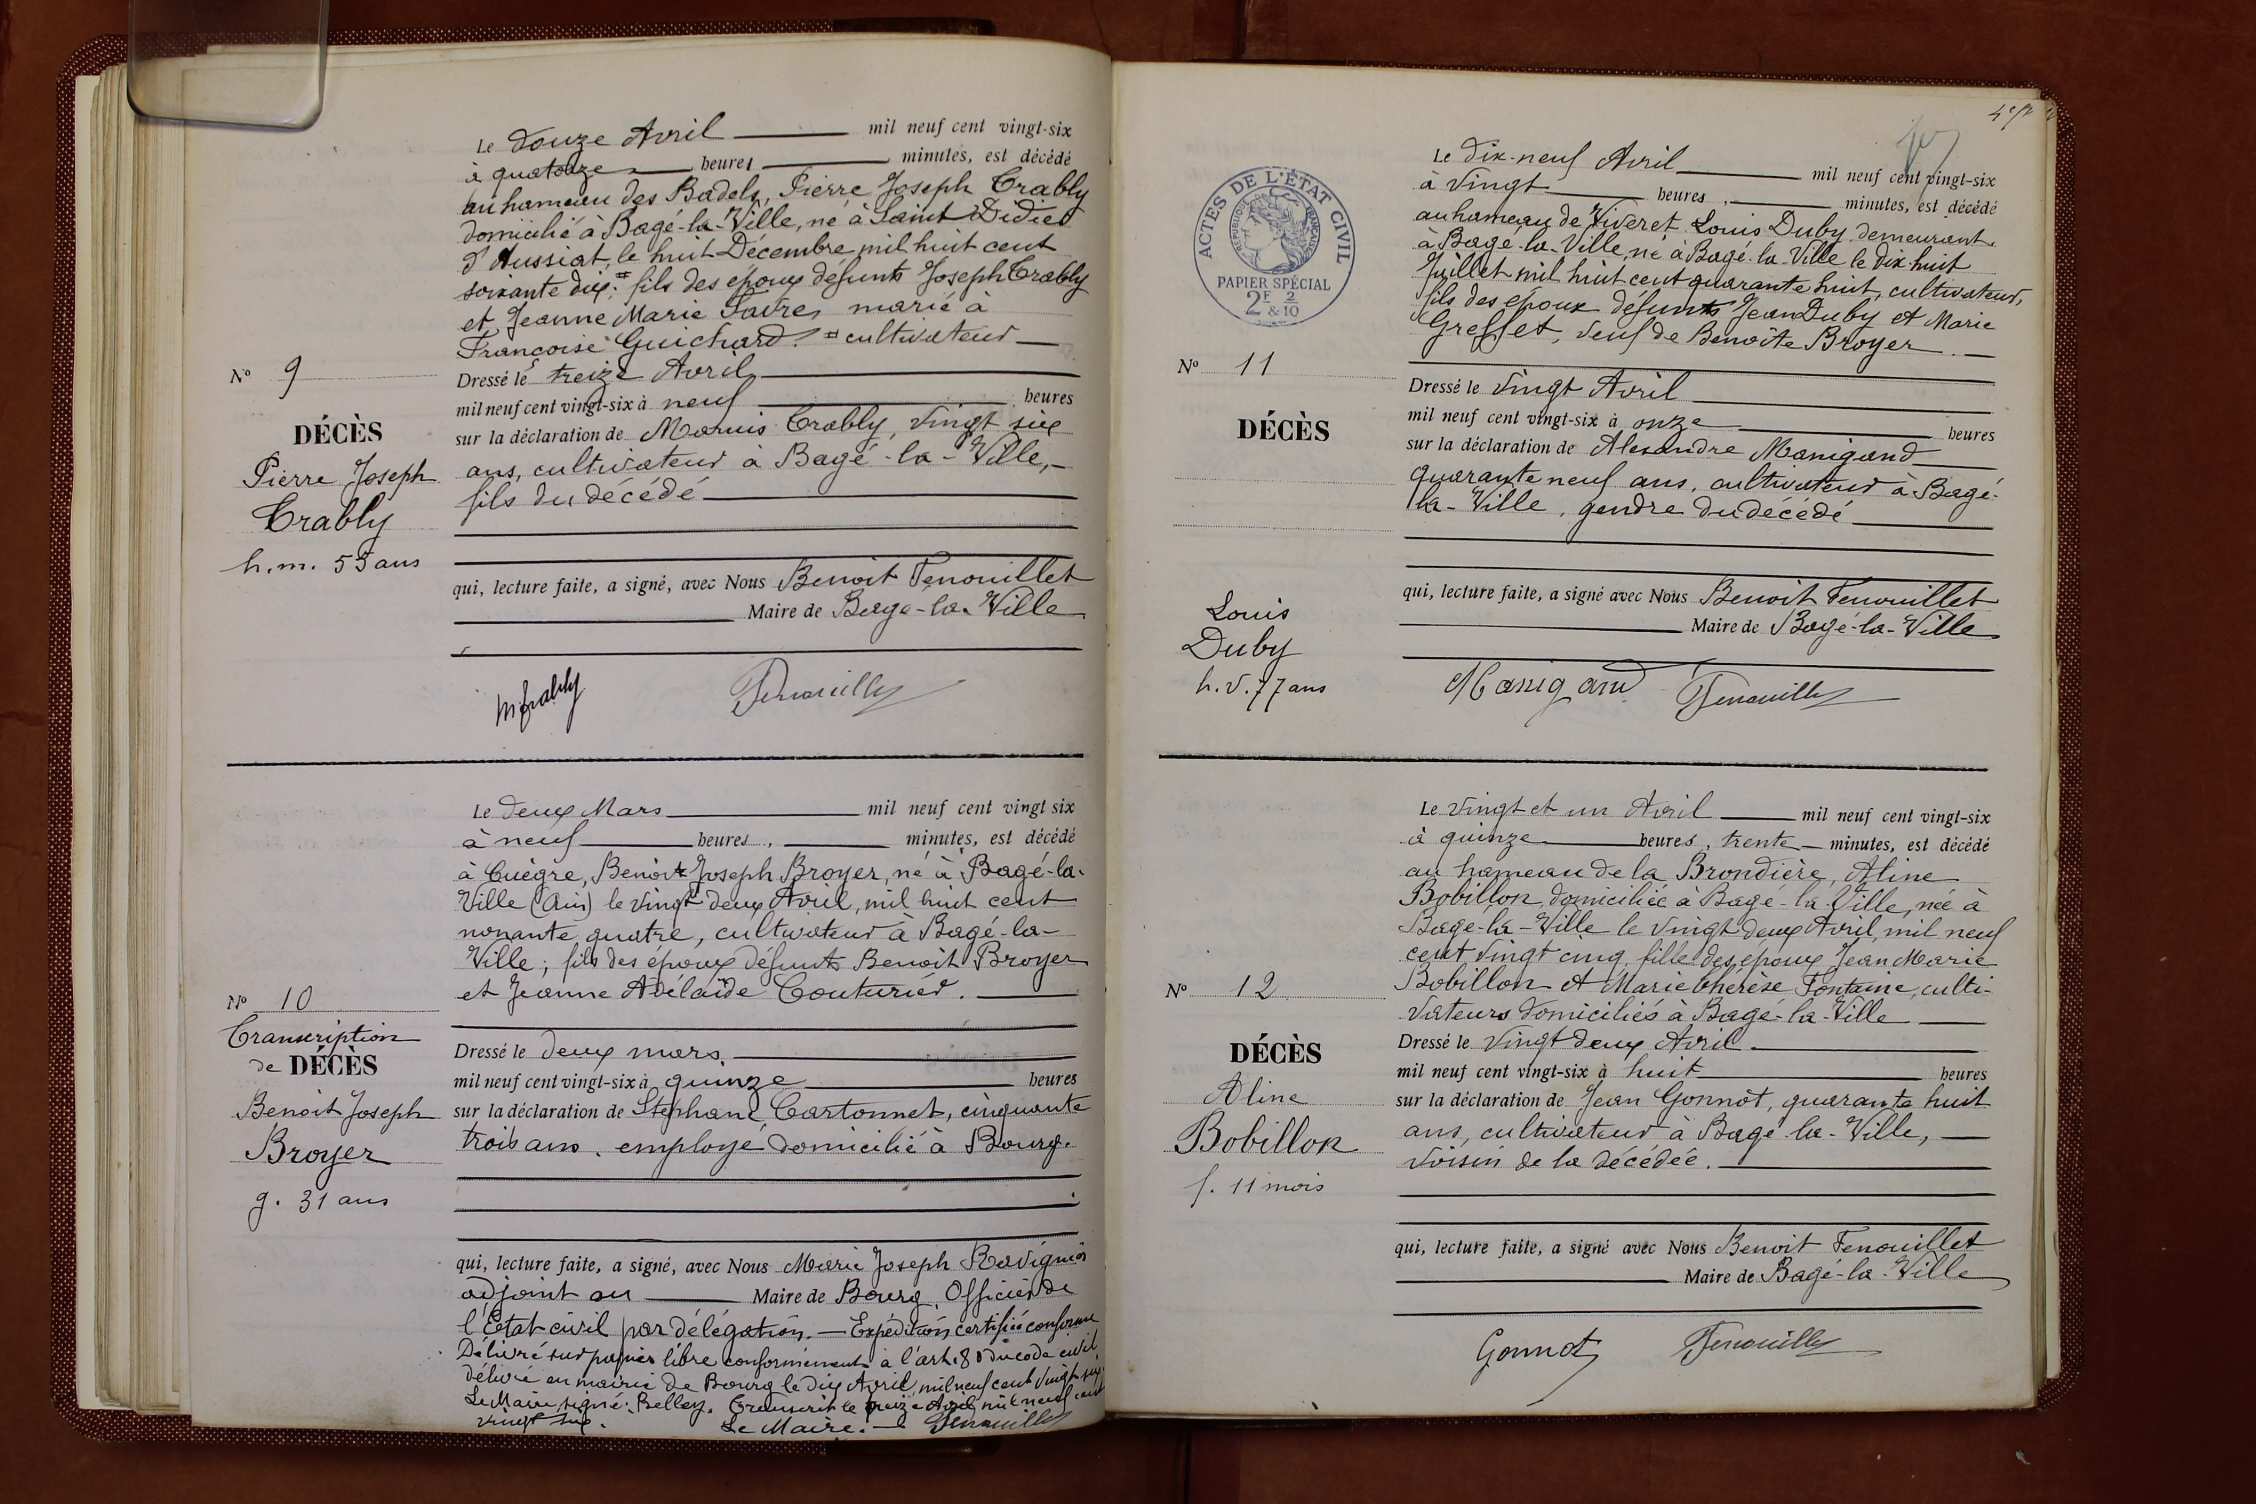 Le douze Avril mil neuf cent vingt-six
à quatorze heures minutes, est décédé
au hameau des Badels, Pierre Joseph Crably
domicilié à Bagé-la-Ville, né à Saint Didier
d'Aussiat, le huit Décembre mil huit cent
soixante dix, = fils des époux défunts Joseph Crably
et Jeanne Marie Favre, marié à
Françoise Guichard. = cultivateur
No 9
DÉCÈS
Pierre Joseph
Crably
h. m. 55 ans
Dressé le treize Avril
mil neuf cent vingt-six à neuf heures
sur la déclaration de Marius Crably, vingt six
ans, cultivateur à Bagé-la-Ville,
fils du décédé
qui, lecture faite, a signé, avec Nous Benoit Fenouillet
Maire de Bage-la-Ville
MCrably Fenouillet
Le deux Mars mil neuf cent vingt six
à neuf heures, minutes, est décédé
à Cuègre, Benoit Joseph Broyer, né à Bagé-la-
Ville (Ain) le vingt deux Avril, mil huit cent
nonante quatre, cultivateur à Bagé-la-
Ville; fils des époux défunts Benoit Broyer
et Jeanne Adélaïde Couturier.
No 10
Transcription
de DÉCÈS
Benoit Joseph
Broyer
g. 31 ans
Dressé le deux mars
mil neuf cent vingt-six à quinze heures
sur la déclaration de Stéphane Cartonnet, cinquante
trois ans, employé domicilié à Bourg.
qui, lecture faite, a signé, avec Nous Marie Joseph
adjoint au Maire de Bourg, Officier de
l'Etat civil par délégation. — Expédition certifiée conforme
Délivré sur papier libre conformément à l'art. 80 du code civil,
délivré en mairie de Bourg le dix Avril mil neuf cent vingt six
Le Maire signé: Belley. Transcrit le treize Avril mil neuf cent
vingt six. Le Maire. — Fenouillet
ACTES DE L'ÉTAT CIVIL
RÉPUBLIQUE FRANÇAISE
PAPIER SPÉCIAL
2F & 2/10
Le dix-neuf Avril mil neuf cent vingt-six
à vingt heures, minutes, est décédé
au hameau de Viveret Louis Duby demeurant
à Bagé-la-Ville, né à Bagé-la-Ville le dix huit
Juillet mil huit cent quarante huit, cultivateur,
fils des époux défunts Jean Duby et Marie
Greffet, veuf de Benoite Broyer.
No 11
DÉCÈS
Louis
Duby
h. v. 77 ans
Dressé le vingt Avril
mil neuf cent vingt-six à onze heures
sur la déclaration de Alexandre Manigand
quarante neuf ans, cultivateur à Bagé-
la-Ville, gendre du décédé
qui, lecture faite, a signé avec Nous Benoit Fenouillet
Maire de Bagé-la-Ville
Manigand Fenouillet
Le vingt et un Avril mil neuf cent vingt-six
à quinze heures, trente minutes, est décédé
au hameau de la Brondière, Aline
Bobillon domiciliée à Bagé-la-Ville, née à
Bagé-la-Ville le vingt deux Avril, mil neuf
cent vingt cinq, fille des époux Jean Marie
Bobillon et Marie Thérèse Fontaine, culti-
vateurs domiciliés à Bagé-la-Ville
No 12
DÉCÈS
Aline
Bobillon
f. 11 mois
Dressé le vingt deux Avril
mil neuf cent vingt-six à huit heures
sur la déclaration de Jean Gonnot, quarante huit
ans, cultivateur à Bagé-la-Ville,
voisin de la décédée.
qui, lecture faite, a signé avec Nous Benoit Fenouillet
Maire de Bagé-la-Ville
Gonnot Fenouillet